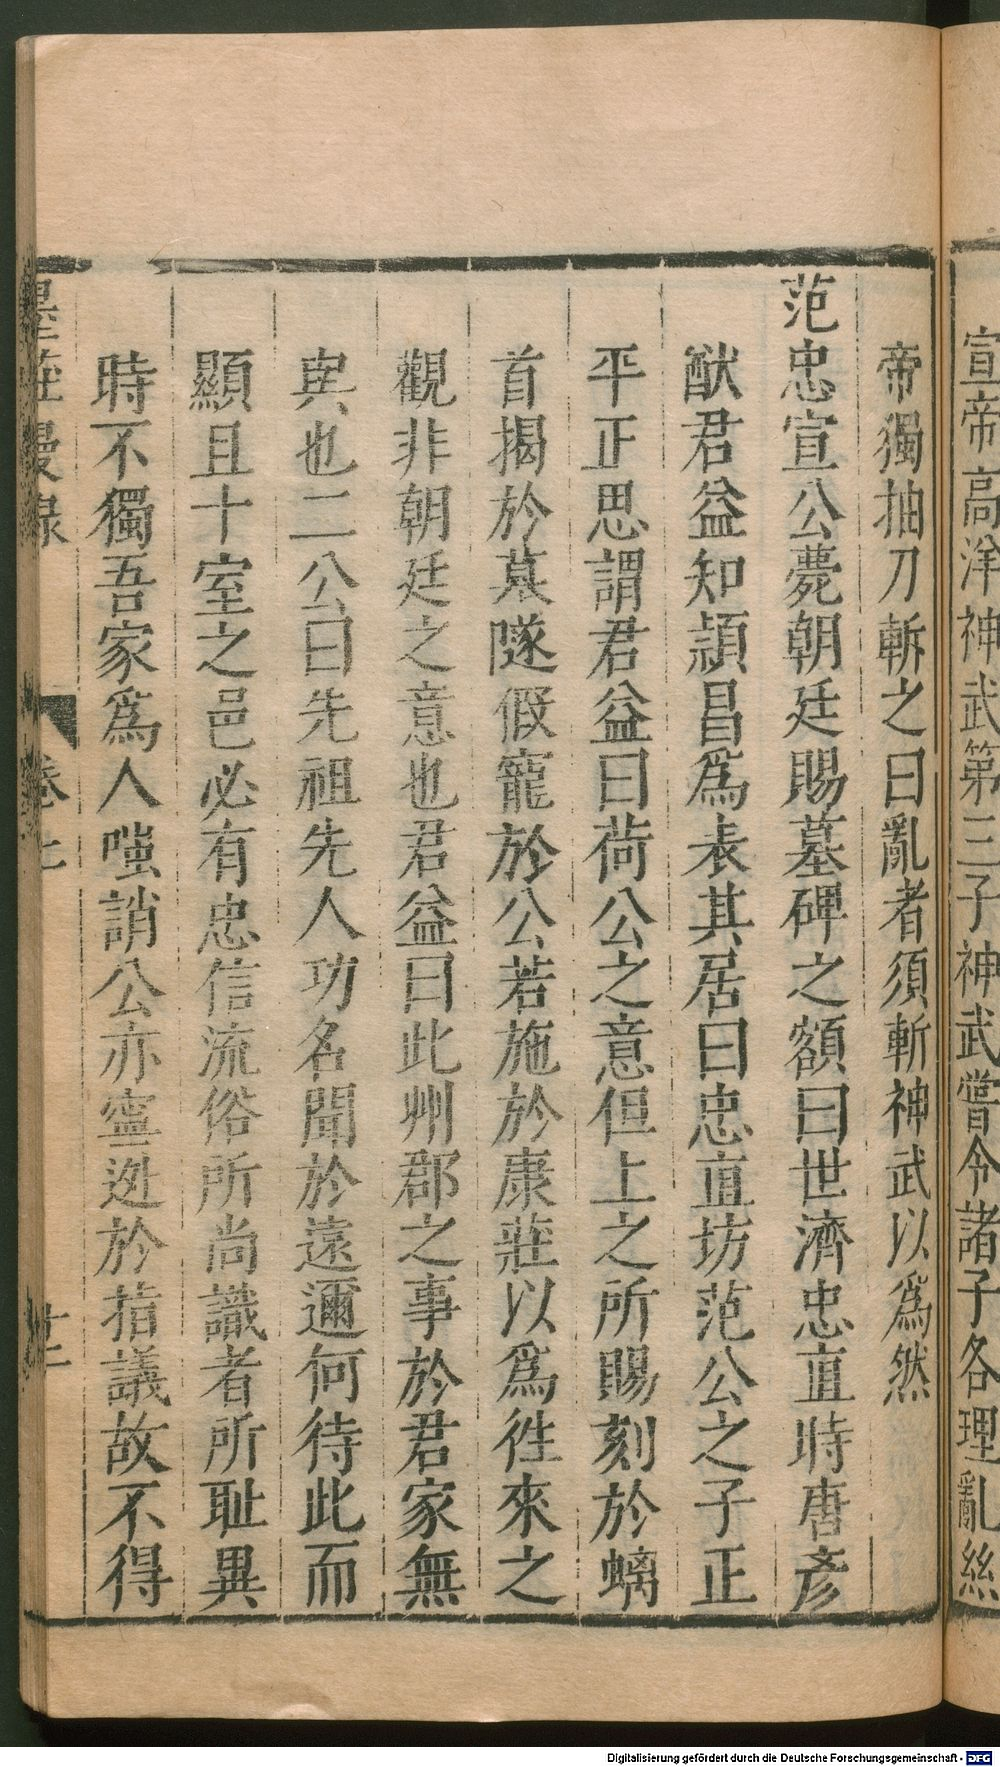 宣帝高洋神武第三子神武嘗令諸子各理亂絲
帝獨抽刀斬之曰亂者須斬神武以爲然
范忠宣公薨朝廷賜墓碑之額曰世濟忠直時唐彥
猷君益知潁昌爲表其居曰忠直坊范公之子正
平正思謂君益曰荷公之意但上之所賜刻於螭
首揭於墓隧假寵於公若施於康莊以爲徃來之
觀非朝廷之意也君益曰此州郡之事於君家無
與也二公曰先祖先人功名聞於遠邇何待此而
顯且十室之邑必有忠信流俗所尚識者所耻異
時不獨吾家爲人嗤誚公亦寧逃於指議故不得
墨莊漫錄
卷上
廿二
Digitalisierung gefördert durch die Deutsche Forschungsgemeinschaft - DFG